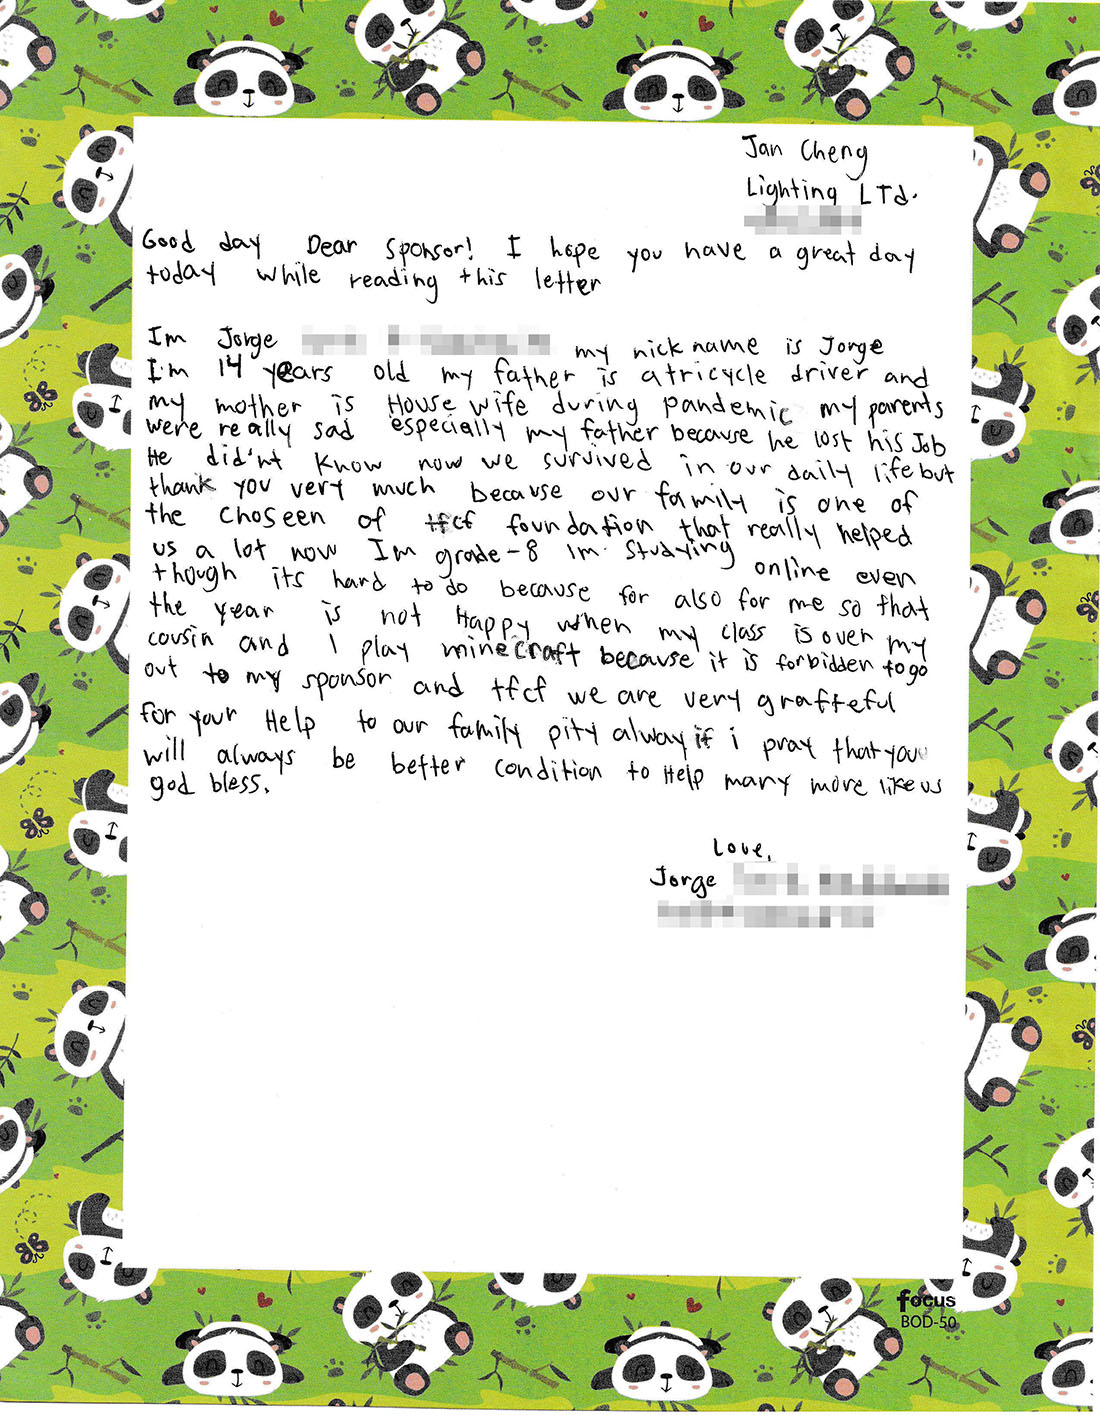 Jan Cheng
Lighting LTd.
Good day Dear Sponsor! I hope you have a great day
today while reading this letter
Im Jorge my nick name is Jorge
I'm 14 years old my father is a tricycle driver and
my mother is House wife during pandemic my parents
were really sad especially my father because he lost his Job
He did'nt know how we survived in our daily life but
thank you very much because our family is one of
the choseen of tfcf foundation that really helped
us a lot now Im grade-8 Im studying online even
though its hard to do because for also for me so that
the year is not Happy when my class is over my
cousin and I play minecraft because it is forbidden to go
out to my sponsor and tfcf we are very grafteful
for your Help to our family pity alway if i pray that you
will always be better condition to Help many more like us
god bless.
Love,
Jorge
focus
BOD-50